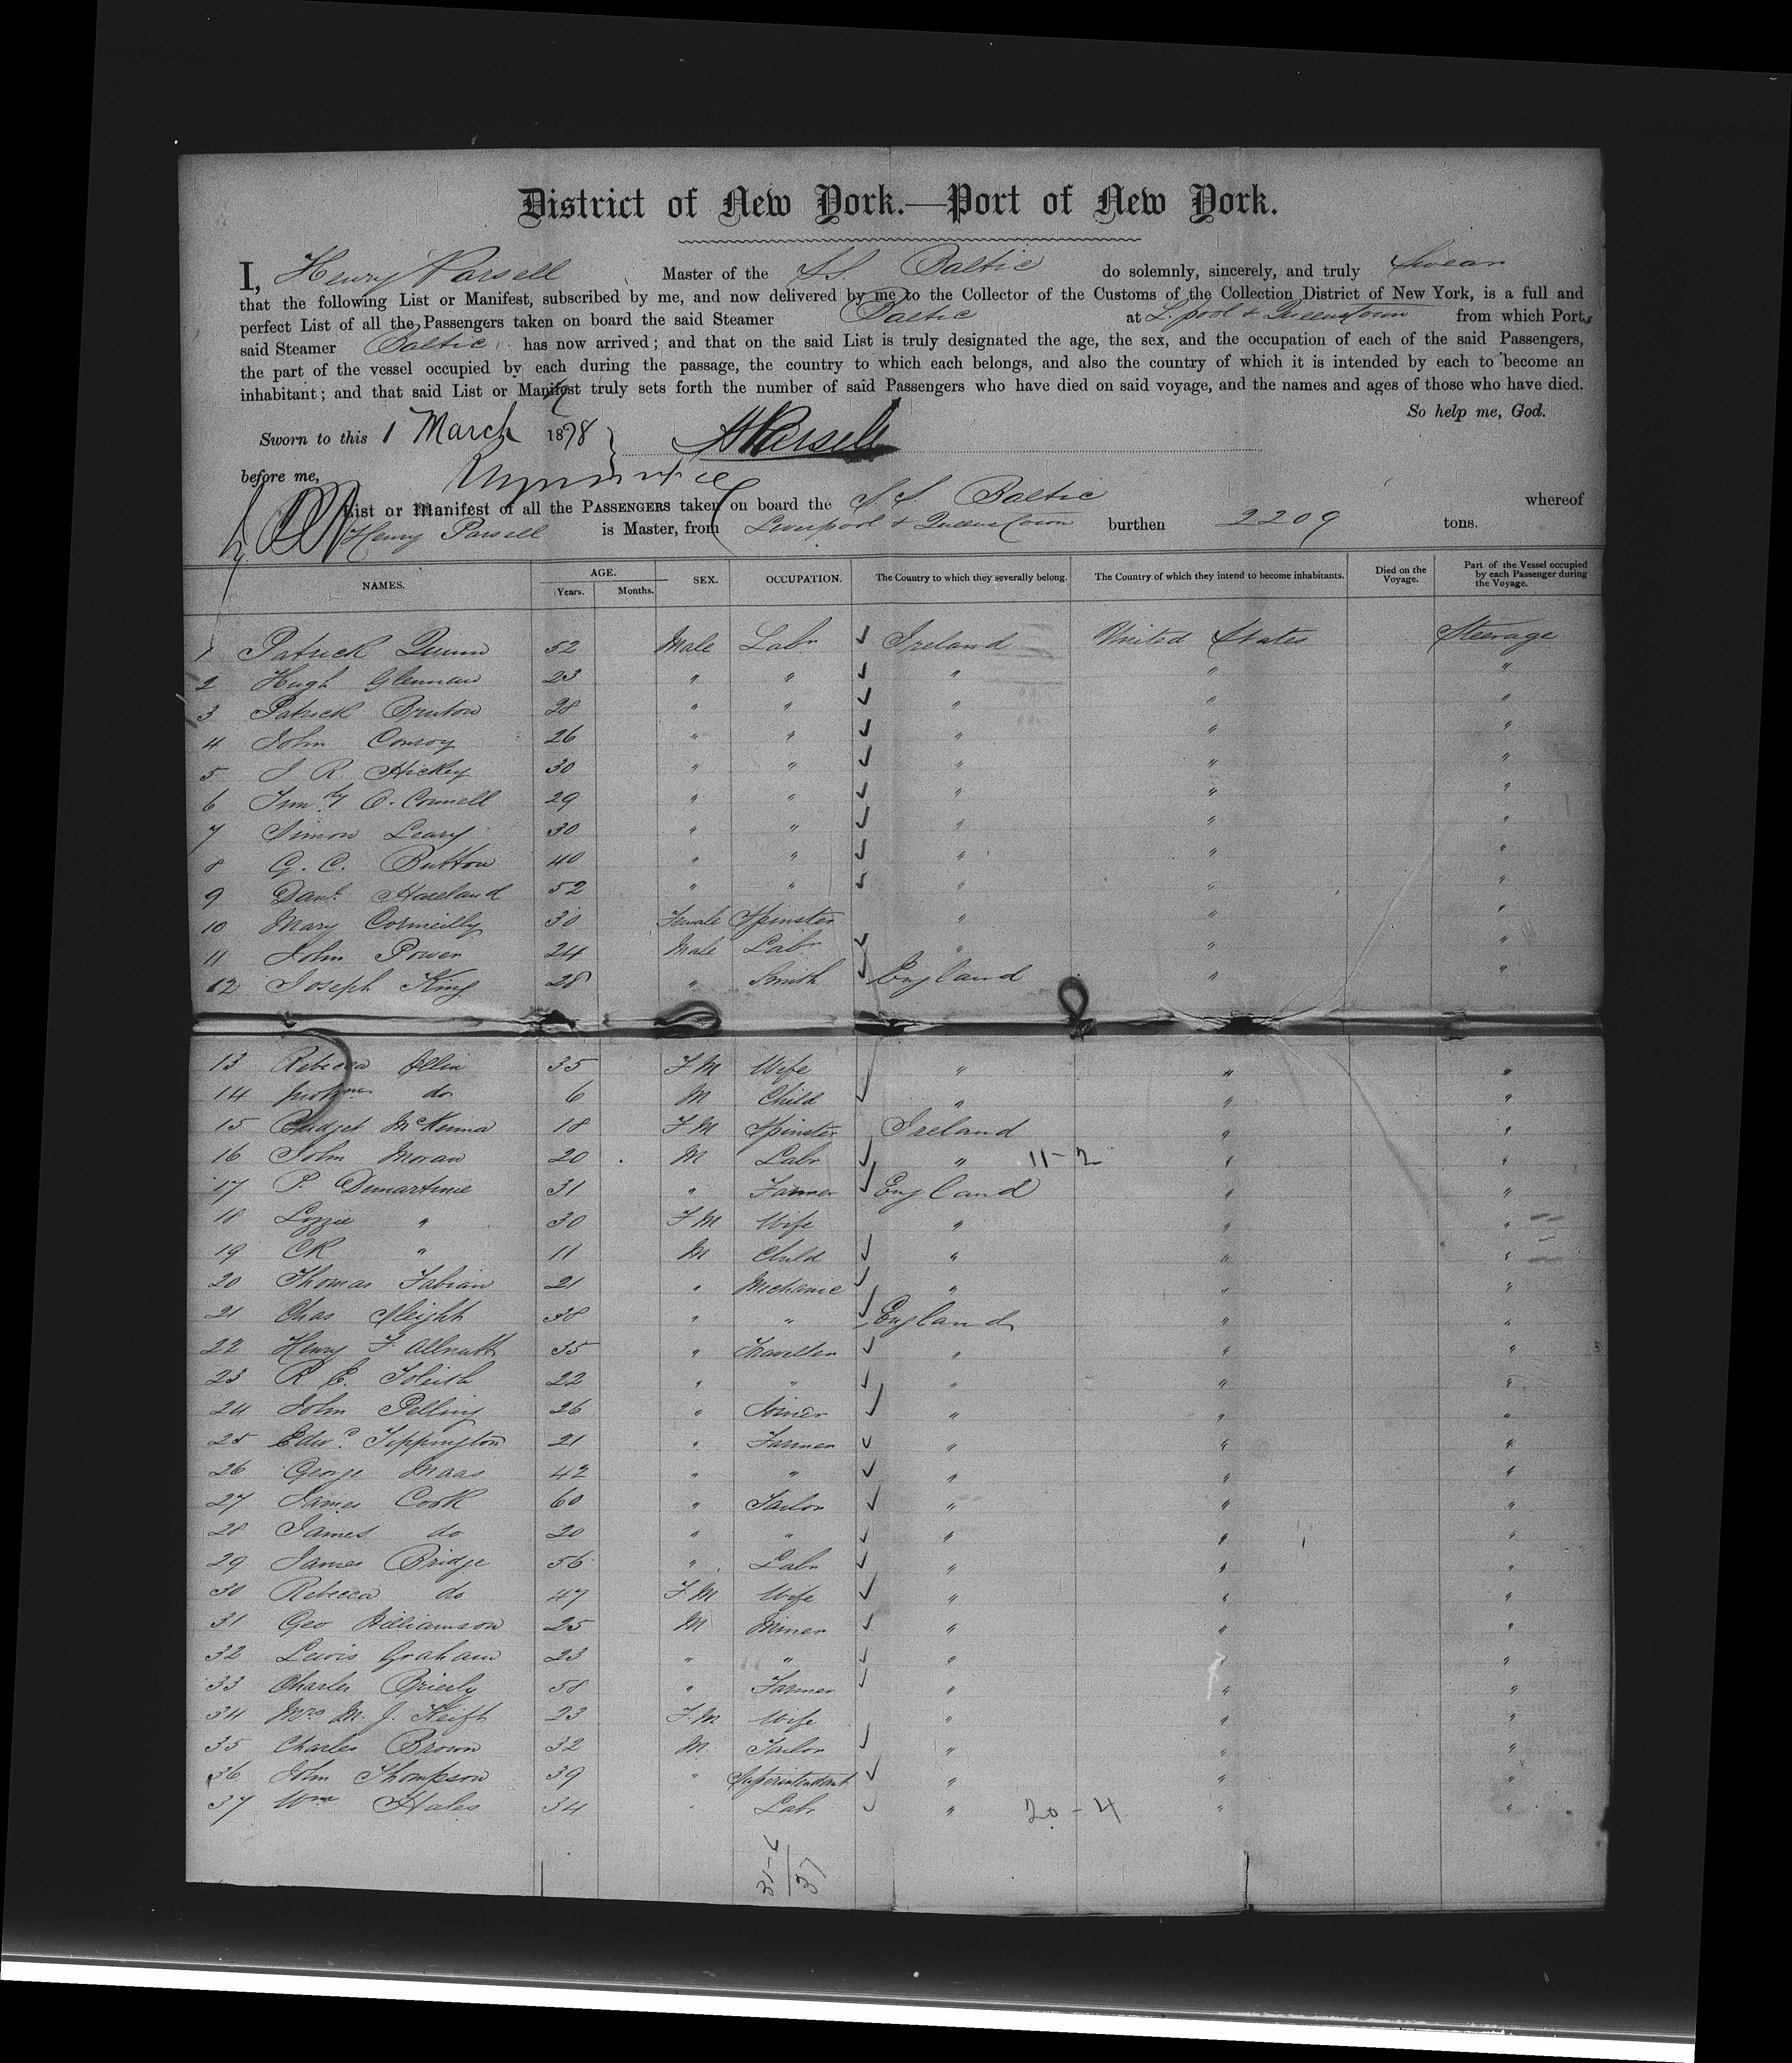 District of New York.—Port of New York.
I, Henry Parsell Master of the S.S. Baltic do solemnly, sincerely, and truly Swear
that the following List or Manifest, subscribed by me, and now delivered by me to the Collector of the Customs of the Collection District of New York, is a full and
perfect List of all the Passengers taken on board the said Steamer Baltic at L.pool & Queenstown from which Ports
said Steamer Baltic has now arrived; and that on the said List is truly designated the age, the sex, and the occupation of each of the said Passengers,
the part of the vessel occupied by each during the passage, the country to which each belongs, and also the country of which it is intended by each to become an
inhabitant; and that said List or Manifest truly sets forth the number of said Passengers who have died on said voyage, and the names and ages of those who have died.
So help me, God.
Sworn to this 1 March 1878 HParsell
before me,
List or Manifest of all the PASSENGERS taken on board the S.S. Baltic whereof
Henry Parsell is Master, from Liverpool & Queenstown burthen 2209 tons.
NAMES. AGE. Years. Months. SEX. OCCUPATION. The Country to which they severally belong. The Country of which they intend to become inhabitants. Died on the Voyage. Part of the Vessel occupied by each Passenger during the Voyage.
1 Patrick Quinn 52 Male Labr Ireland United States Steerage
2 Hugh Glennan 23 " " " " "
3 Patrick Bruton 28 " " " " "
4 John Conroy 26 " " " " "
5 J R. Hickey 30 " " " " "
6 Timthy O. Connell 29 " " " " "
7 Simon Leary 30 " " " " "
8 G. C. Button 40 " " " " "
9 Danl. 52 " " " " "
10 Mary 30 Female Spinster " " "
11 John Power 24 Male Labr " " "
12 Joseph King 28 " Smith England " "
13 Rebecca 35 F M Wife " " "
14 do 6 M Child " " "
15 Bridget McKenna 18 F M Spinster Ireland " "
16 John Moran 20 M Labr " 11-2 " "
17 P. Demartine 31 " Farmer England " "
18 Lizzie " 30 F M Wife " " "
19 CK " 11 M Child " " "
20 Thomas Fabian 21 " Mechanic " " "
21 Chas Sleight 38 " " England " "
22 Henry F Allnutt 35 " Traveller " " "
23 R E. 22 " " " " "
24 John Pelling 26 " " " "
25 Edwd. Tippington 21 " Farmer " " "
26 George Maas 42 " " " " "
27 James Cook 60 " Tailor " " "
28 James do 20 " " " " "
29 James Bridge 56 " Labr " " "
30 Rebecca do 47 F M Wife " " "
31 Geo Williamson 25 M Miner " " "
32 Lewis Graham 23 " " " " "
33 Charles Brierly 58 " Farmer " " "
34 Mrs M. J. Keift 23 F M Wife " " "
35 Charles Brown 32 M Tailor " " "
36 John Thompson 39 " Superintendent " " "
37 Wm Hales 34 " Labr " 20-4 " "
31-6
37